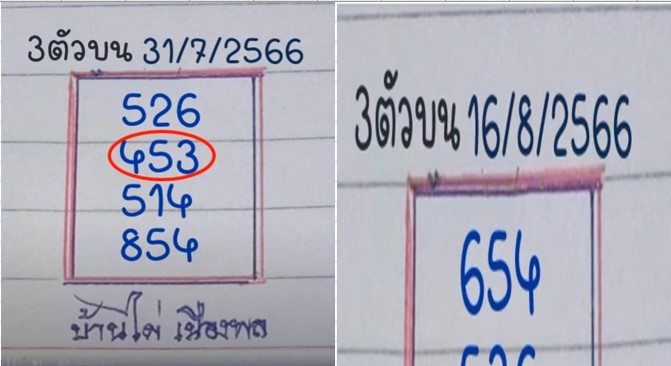 3ตัวบน 31/7/2566
526
453
514
854
บ้านไผ่ เมืองพล
3ตัวบน 16/8/2566
654